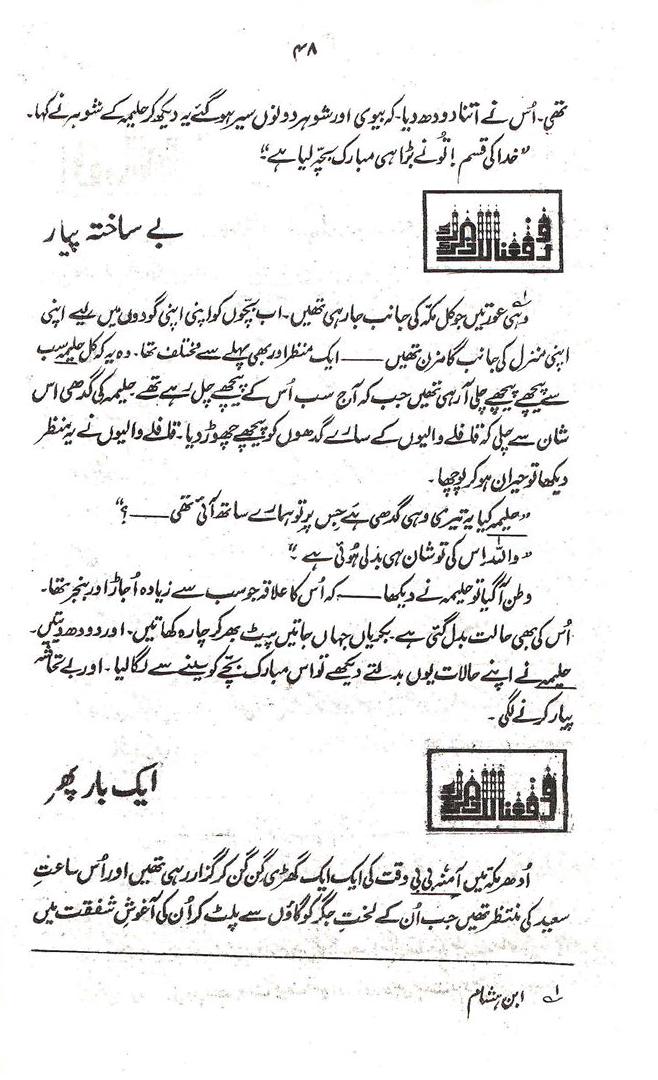 ۴۸
تھی۔ اُس نے اتنا دودھ دیا۔ کہ بیوی اور شوہر دونوں سیر ہو گئے یہ دیکھ کر حلیمہ کے شوہر نے کہا۔
”خدا کی قسم ! تُو نے بڑا ہی مبارک بچّہ لیا ہے“؎
بے ساختہ پیار
ورفعنا لک ذکرک
وہی عورتیں جو کل مکہ کی جانب جا رہی تھیں۔ اب بچّوں کو اپنی اپنی گودوں میں لیے اپنی
اپنی منزل کی جانب گامزن تھیں —— ایک منظر اور بھی پہلے سے مختلف تھا۔ وہ یہ کہ کل حلیمہ سب
سے پیچھے پیچھے چلی آ رہی تھیں جب کہ آج سب اُس کے پیچھے چل رہے تھے۔ حلیمہ کی گدھی اس
شان سے چلی کہ قافلے والیوں کے سارے گدھوں کو پیچھے چھوڑ دیا۔ قافلے والیوں نے یہ منظر
دیکھا تو حیران ہو کر پوچھا۔
”حلیمہ کیا یہ تیری وہی گدھی ہے جس پر تو ہمارے ساتھ آئی تھی —— ؟“
”واللہ اس کی تو شان ہی بدلی ہُوئی ہے۔“
وطن آ گیا تو حلیمہ نے دیکھا —— کہ اُس کا علاقہ جو سب سے زیادہ اُجاڑ اور بنجر تھا۔
اُس کی بھی حالت بدل گئی ہے۔ بکریاں جہاں جاتیں پیٹ بھر کر چارہ کھاتیں۔ اور دودھ دیتیں۔
حلیمہ نے اپنے حالات یوں بدلتے دیکھے تو اس مبارک بچّے کو سینے سے لگا لیا۔ اور بے تحاشہ
پیار کرنے لگی۔
ایک بار پھر
ورفعنا لک ذکرک
اُدھر مکہ میں آمنہ بی بی وقت کی ایک ایک گھڑی گن گن کر گزار رہی تھیں اور اُس ساعتِ
سعید کی منتظر تھیں جب اُن کے لختِ جگر کو گاؤں سے پلٹ کر اُن کی آغوشِ شفقت میں
۱؎ ابن ہشام